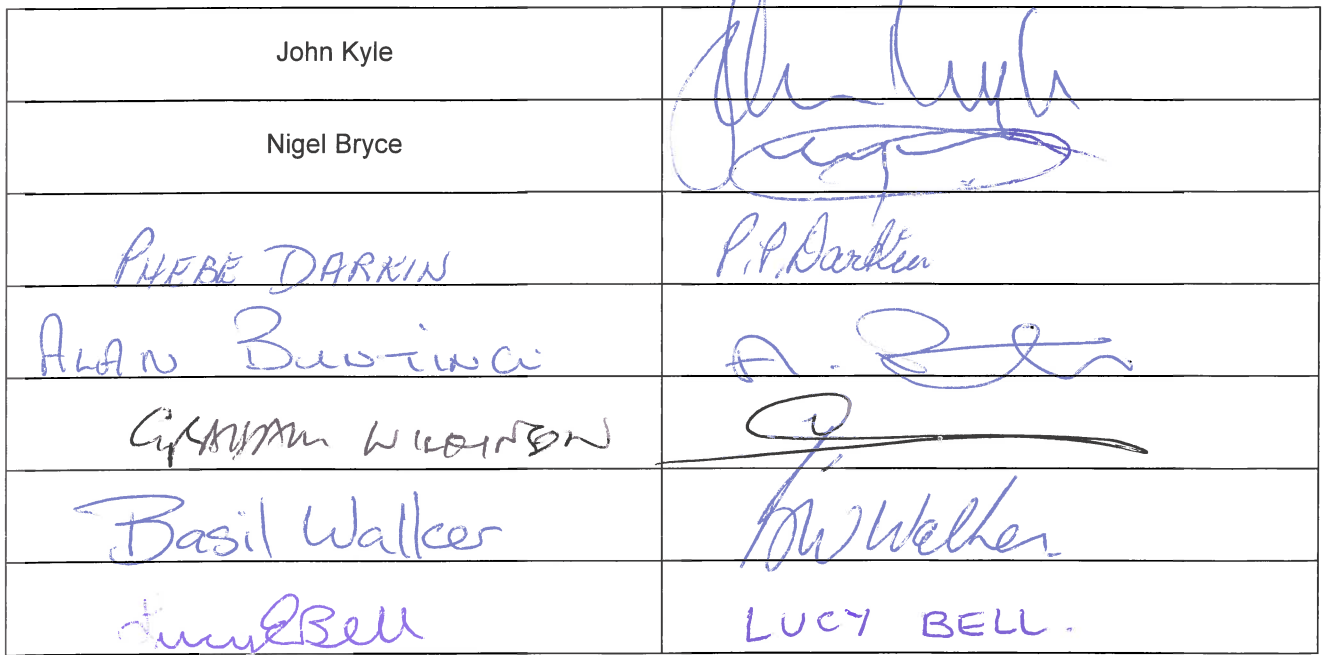 John Kyle John Kyle
Nigel Bryce
PHEBE DARKIN P.P. Darkin
ALAN BUNTING A.
GRAHAM WILKINSON
Basil Walker BW Walker
Lucy E Bell LUCY BELL.